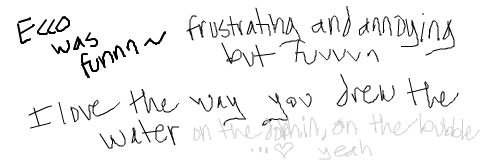 Ecco was funnn~
frustrating and annoying
but funnn
I love the way you drew the
water on the dolphin, on the bubble
...♡ yeah